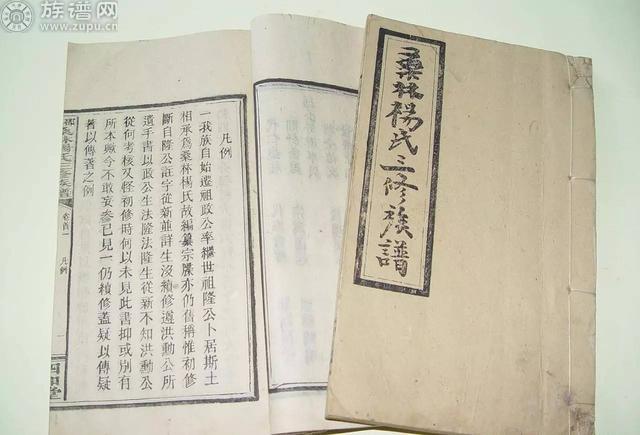 族谱网
www.zupu.cn
桑林楊氏三修族譜
凡例
一我族自始遷祖政公率繼世祖隆公卜居斯土
相承爲桑林楊氏故編纂宗牒亦仍舊稱惟初修
斷自隆公註字從新並詳生沒續修遵洪勳公所
遺手書以政公生法隆法隆生從新不知洪勳公
從何考核又怪初修時何以未見此書抑或別有
所本職今不敢妄參已見一仍續修蓋疑以傳疑
著以傳著之例
卷首一
凡例
一
四知堂